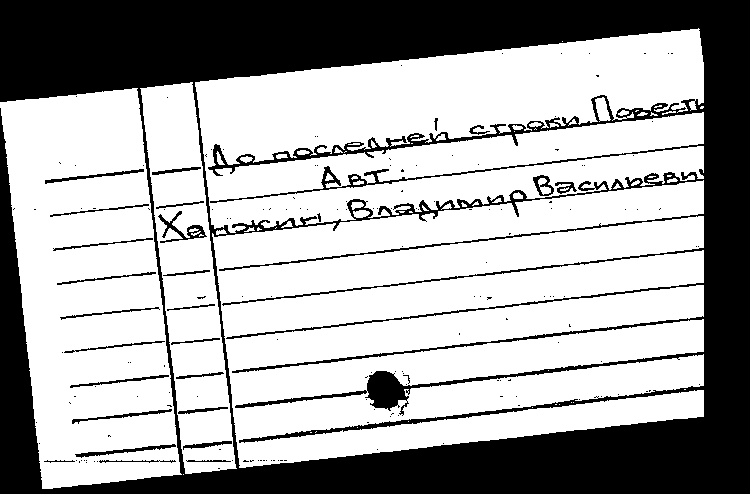 До последней строки. Повесть
Авт.:
Ханжин, Владимир Васильевич